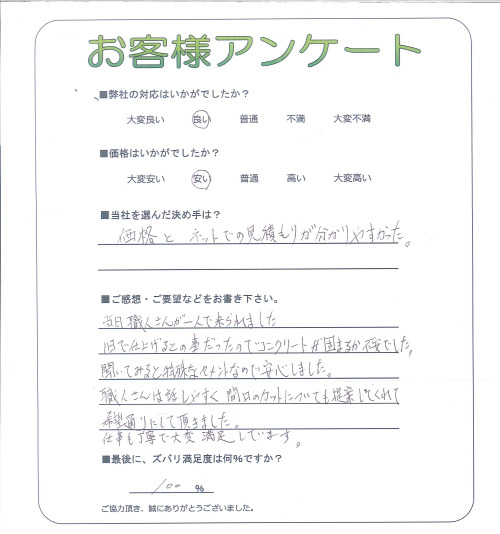 お客様アンケート
■弊社の対応はいかがでしたか？
大変良い 良い 普通 不満 大変不満
■価格はいかがでしたか？
大変安い 安い 普通 高い 大変高い
■当社を選んだ決め手は？
価格と ネットでの見積もりが分かりやすかった。
■ご感想・ご要望などをお書き下さい。
当日職人さんが一人で来られました
1日で仕上げるとの事だったのでコンクリートが固まるか不安でした。
聞いてみると特殊なセメントなので安心しました。
職人さんは話しやすく 間口のカットについても提案してくれて
希望通りにして頂きました。
仕事も丁寧で大変 満足しています。
■最後に、ズバリ満足度は何%ですか？
100 %
ご協力頂き、誠にありがとうございました。